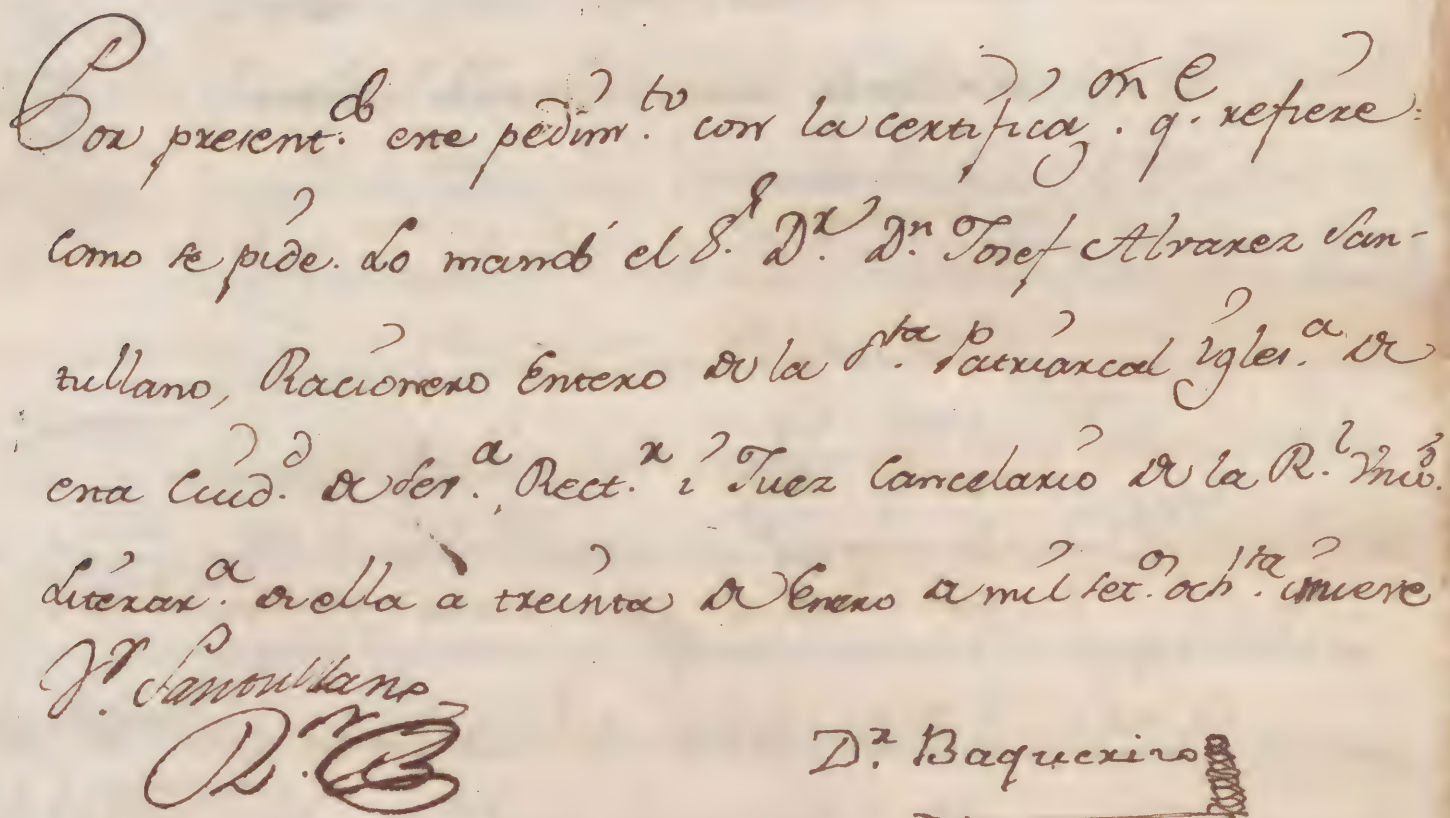 Por present.do este pedim.to con la certificaz.on q.e refiere:
Como se pide. Lo mandó el S.r D.r D.n Josef Alvarez San-
tullano, Racionero Entero de la S.ta Patriarcal Igles.a de
esta Ciud.d de Sev.a, Rect.r i Juez Cancelario de la R.l Univ.
Literar.a de ella à treinta de Enero de mil set.os och.ta i nueve
Santullano
D.r Baquerizo